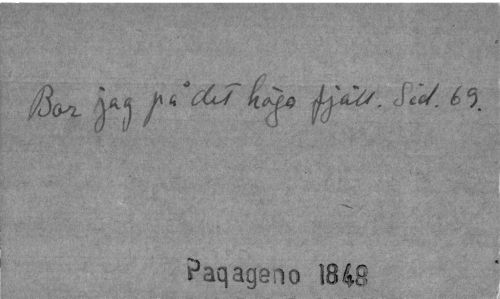 Bor jag på det höga fjäll. Sid. 69.
Paqageno 1848